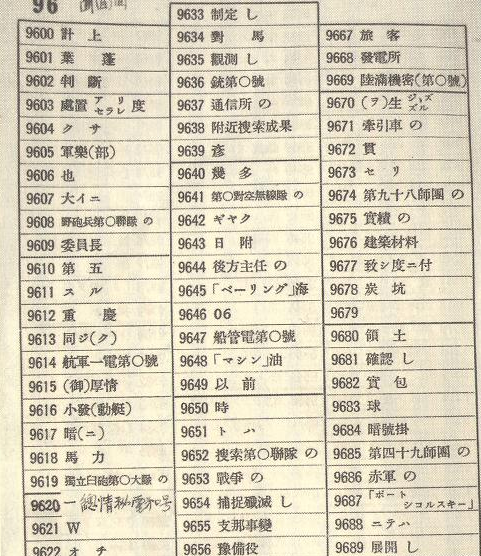 96
9600 計 上
9601 葉 蓬
9602 判 斷
9603 處置 アリ セラレ 度
9604 クサ
9605 軍樂(部)
9606 也
9607 大イニ
9608 野砲兵第〇聯隊 の
9609 委員長
9610 第 五
9611 スル
9612 重 慶
9613 同ジ(ク)
9614 航軍一電第〇號
9615 (御)厚情
9616 小發(動艇)
9617 暗(ニ)
9618 馬 力
9619 獨立臼砲第〇大隊 の
9620
9621 W
9622 オ チ
9633 制定 し
9634 對 馬
9635 觀測 し
9636 銃第〇號
9637 通信所 の
9638 附近搜索成果
9639 彥
9640 幾 多
9641 第〇對空無線隊 の
9642 ギャク
9643 日 附
9644 後方主任 の
9645 「ベーリング」海
9646 06
9647 船管電第〇號
9648 「マシン」油
9649 以 前
9650 時
9651 トハ
9652 搜索第〇聯隊 の
9653 戰爭 の
9654 捕捉殲滅 し
9655 支那事變
9656 豫備役
9667 旅 客
9668 發電所
9669 陸滿機密(第〇號)
9670 (ヲ)生 ジ,ズ ズル
9671 牽引車 の
9672 貫
9673 セリ
9674 第九十八師團 の
9675 實績 の
9676 建築材料
9677 致シ度ニ付
9678 炭 坑
9679
9680 領 土
9681 確認 し
9682 實 包
9683 球
9684 暗號掛
9685 第四十九師團 の
9686 赤軍 の
9687 「ポートシコルスキー」
9688 ニテハ
9689 展開 し